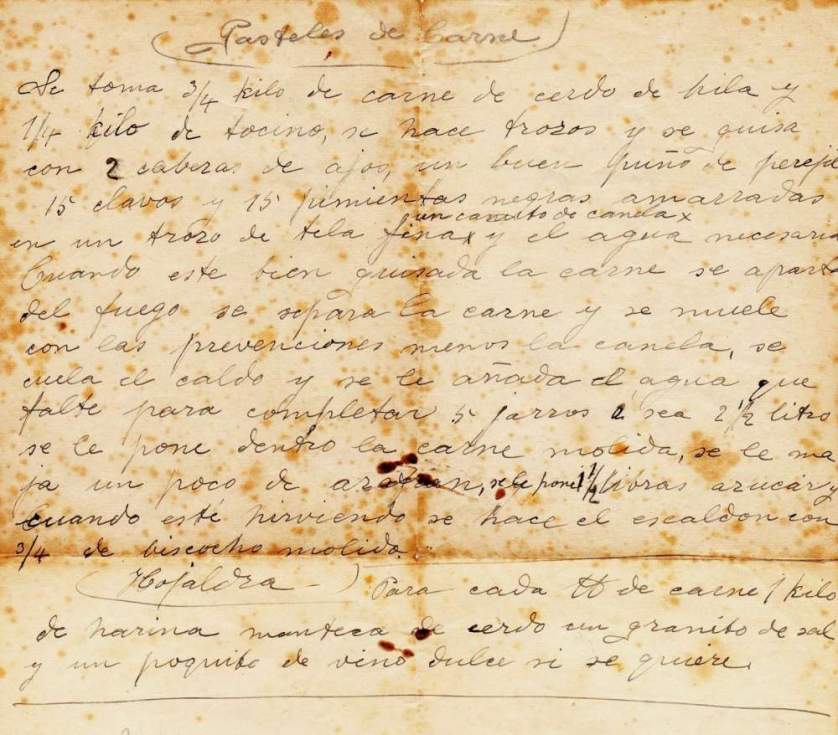 Pasteles de Carne
Se toma 3/4 kilo de carne de cerdo de hila y
1/4 kilo de tocino, se hace trozos y se guisa
con 2 cabezas de ajos, un buen puño de pereji
15 clavos y 15 pimientas negras amarradas
un canuto de canela x
en un trozo de tela fina x y el agua necesaria
Cuando este bien guisada la carne se aparta
del fuego se separa la carne y se muele
con las prevenciones menos la canela, se
cuela el caldo y se le añada el agua que
falte para completar 5 jarros o sea 2 1/2 litro
se le pone dentro la carne molida, se le ma
ja un poco de azafran, se le pone 1 1/2 libras azucar y
cuando esté hirviendo se hace el escaldon con
3/4 de biscocho molido.
Hojaldra - Para cada de carne 1 kilo
de harina manteca de cerdo un granito de sal
y un poquito de vino dulce si se quiere.